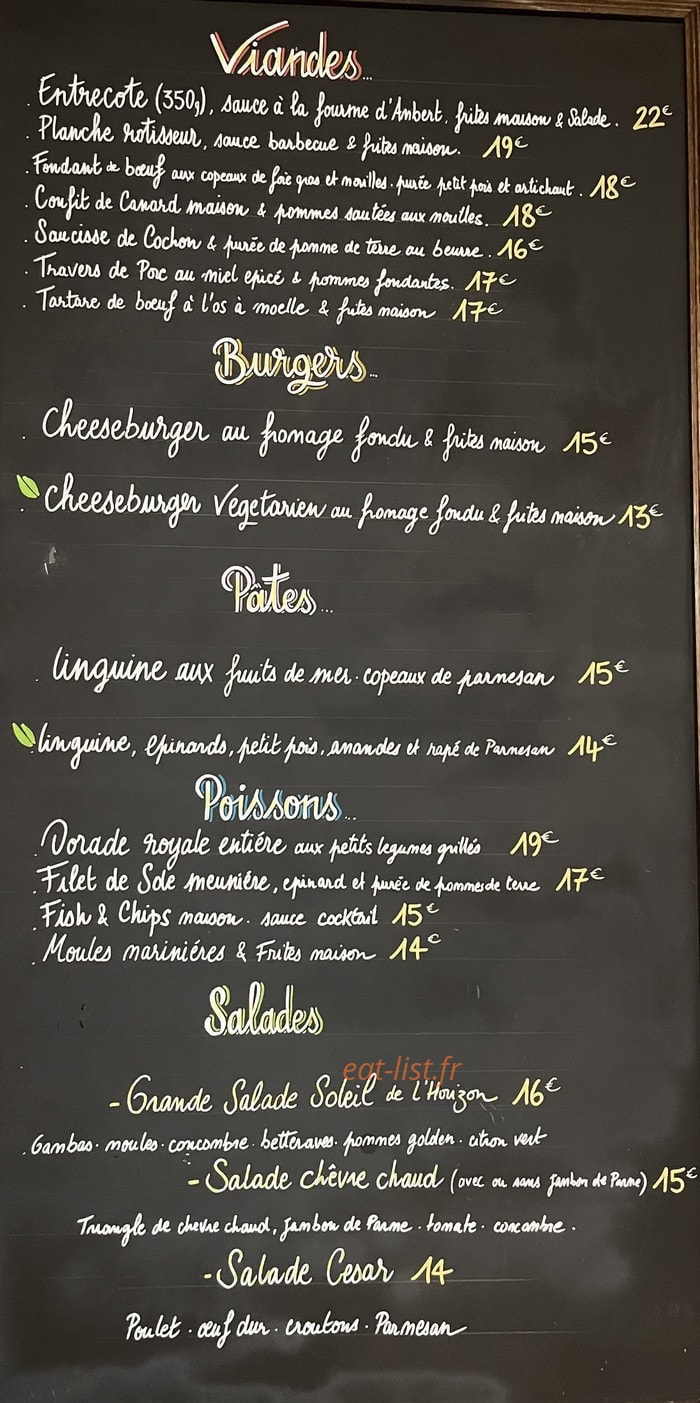 Viandes...
. Entrecote (350g), sauce à la fourme d'Ambert, frites maison & Salade. 22€
. Planche rotisseur, sauce barbecue & frites maison. 19€
. Fondant de bœuf aux copeaux de foie gras et morilles. purée petit pois et artichaut. 18€
. Confit de Canard maison & pommes sautées aux morilles. 18€
. Saucisse de Cochon & purée de pomme de terre au beurre. 16€
. Travers de Porc au miel epicé & pommes fondantes. 17€
. Tartare de bœuf à l'os à moelle & frites maison 17€
Burgers...
. Cheeseburger au fromage fondu & frites maison 15€
. Cheeseburger Végétarien au fromage fondu & frites maison 13€
Pâtes...
. linguine aux fruits de mer. copeaux de parmesan 15€
. linguine, épinards, petit pois, amandes et rapé de Parmesan 14€
Poissons...
. Dorade royale entiére aux petits legumes grillés 19€
. Filet de Sole meuniére, epinard et purée de pommes de terre 17€
. Fish & Chips maison. sauce cocktail 15€
. Moules mariniéres & Frites maison 14€
Salades
eat-list.fr
- Grande Salade Soleil de l'Horizon 16€
. Gambas. moules. concombre. betteraves. pommes golden. citron vert
- Salade chêvre chaud (avec ou sans jambon de Parme) 15€
Triangle de chevre chaud, jambon de Parme. tomate. concombre.
- Salade Cesar 14
Poulet. œuf dur. croutons. Parmesan